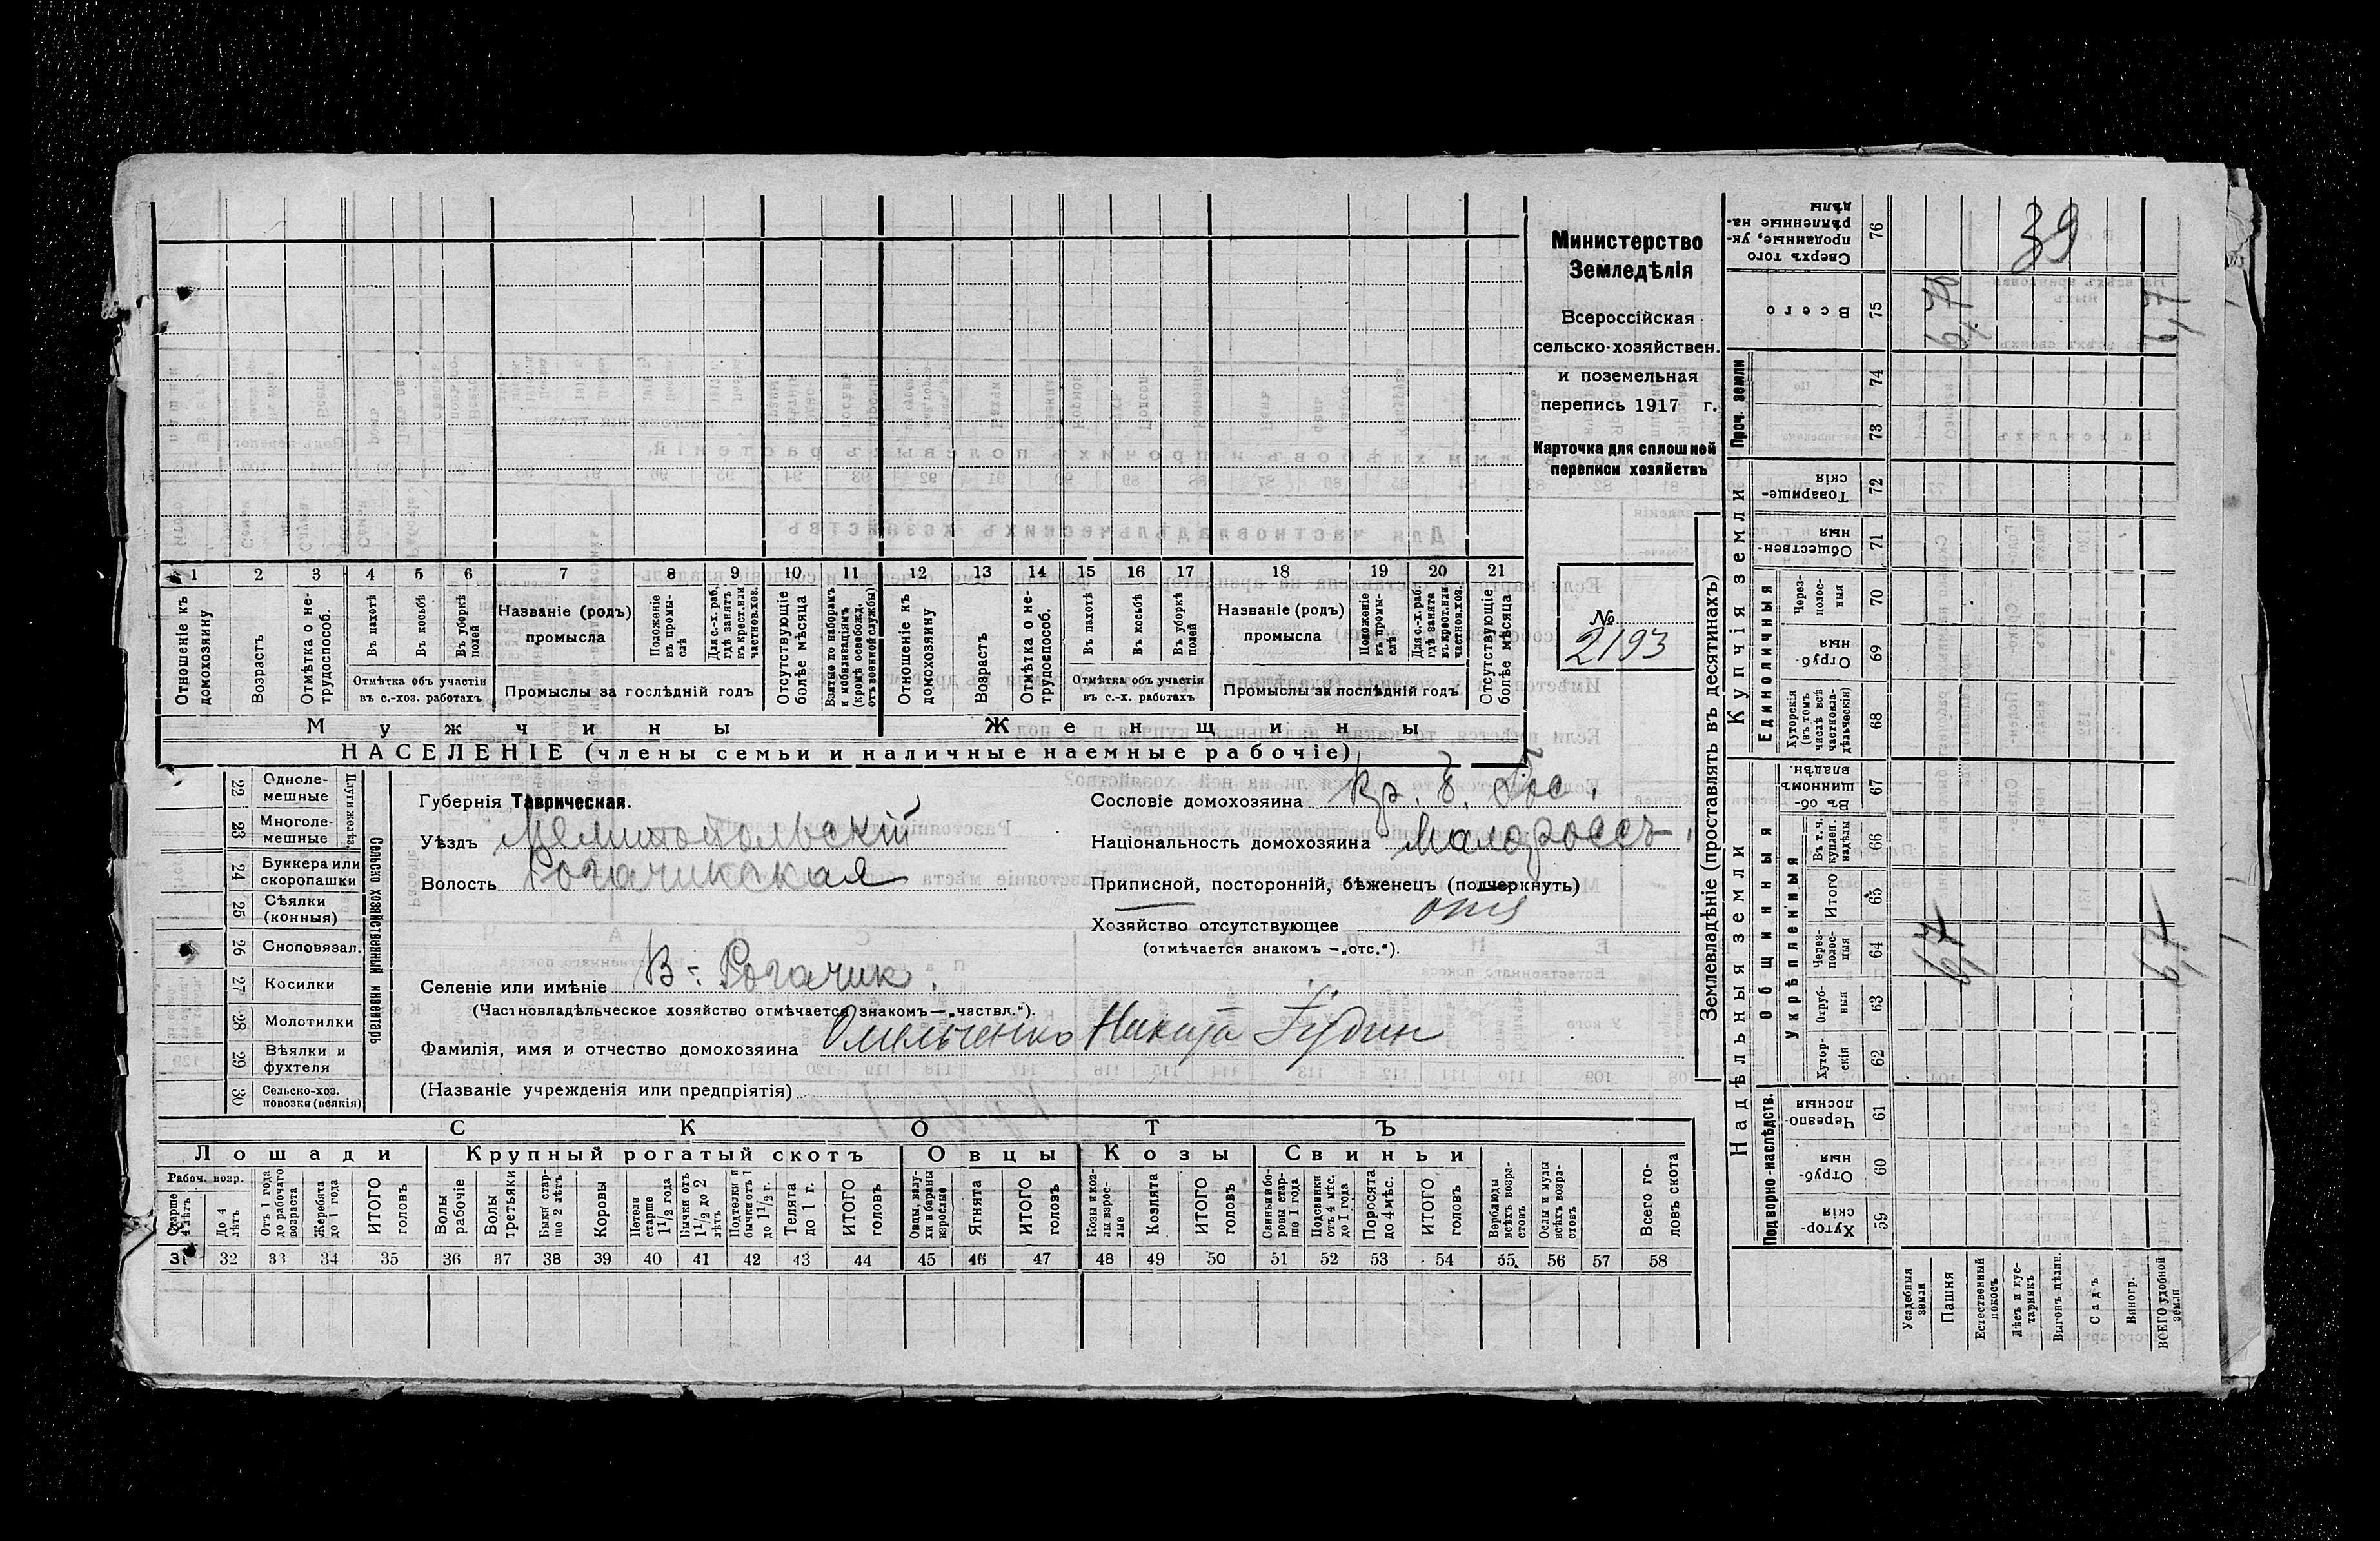 Министерство
Земледѣлія
Всероссійская
сельско-хозяйствен.
и поземельная
перепись 1917 г.
Карточка для сплошной
переписи хозяйствъ
№
2193
39
1 2 3 4 5 6 7 8 9 10 11 12 13 14 15 16 17 18 19 20 21
Отношеніе къ домохозяину
Возрастъ
Отмѣтка о нетрудоспособ.
Въ пахотѣ
Въ косьбѣ
Въ уборкѣ полей
Отмѣтка объ участіи
въ с.-хоз. работахъ
Названіе (родъ)
промысла
Положеніе въ промыслѣ
Для с.-х. раб. гдѣ занятъ въ крест. или частнов. хоз.
Промыслы за послѣдній годъ
Отсутствующіе болѣе мѣсяца
Взятые по наборамъ и мобилизаціямъ (кромѣ освобожд. отъ военной службы)
Отношеніе къ домохозяину
Возрастъ
Отмѣтка о нетрудоспособ.
Въ пахотѣ
Въ косьбѣ
Въ уборкѣ полей
Отмѣтка объ участіи
въ с.-х. работахъ
Названіе (родъ)
промысла
Положеніе въ промыслѣ
Для с.-х. раб. гдѣ занята въ крест. или частнов. хоз.
Промыслы за послѣдній годъ
Отсутствующіе болѣе мѣсяца
Мужчины
Женщины
НАСЕЛЕНІЕ (члены семьи и наличные наемные рабочіе)
22 Одноле-
мешные
23 Многоле-
мешные
Плуги желѣз.
24 Буккера или
скоропашки
25 Сѣялки
(конныя)
26 Сноповязал.
27 Косилки
28 Молотилки
29 Вѣялки и
фухтеля
30 Сельско-хоз.
повозки (всякія)
Сельско хозяйственный инвентарь
Губернія Таврическая.
Уѣздъ Мелитопольскій
Волость Рогачикская
Селеніе или имѣніе В-Рогачик.
(Частновладѣльческое хозяйство отмѣчается знакомъ—„частвл.“).
Фамилія, имя и отчество домохозяина Омельченко Никита
(Названіе учрежденія или предпріятія)
Сословіе домохозяина Кр.
Національность домохозяина Малороссъ.
Приписной, посторонній, бѣженецъ (подчеркнуть)
Хозяйство отсутствующее
(отмѣчается знакомъ —„отс.“).
СКОТЪ
Лошади
Крупный рогатый скотъ
Овцы
Козы
Свиньи
Рабоч. возр.
Старше 4 лѣтъ
До 4 лѣтъ
Отъ 1 года до рабочаго возраста
Жеребята до 1 года
ИТОГО головъ
Волы рабочіе
Волы третьяки
Быки старше 2 лѣтъ
Коровы
Нетели старше 1 1/2 года
Бычки отъ 1 1/2 до 2 лѣтъ
Подтелки и бычки отъ 1 до 1 1/2 г.
Телята до 1 г.
ИТОГО головъ
Овцы, валухи и бараны взрослые
Ягнята
ИТОГО головъ
Козы и козлы взрослые
Козлята
ИТОГО головъ
Свиньи и боровы старше 1 года
Подсвинки отъ 4 мѣс. до 1 года
Поросята до 4 мѣс.
ИТОГО головъ
Верблюды всѣхъ возрастовъ
Ослы и мулы всѣхъ возрастовъ
Всего головъ скота
31 32 33 34 35 36 37 38 39 40 41 42 43 44 45 46 47 48 49 50 51 52 53 54 55 56 57 58
Землевладѣніе (проставлять въ десятинахъ)
Надѣльныя земли
Купчія земли
Проч. земли
Подворно-наслѣдств.
Общинныя
Укрѣпленныя
Единоличныя
Хуторскія 59
Отрубныя 60
Черезполосныя 61
Хуторскія 62
Отрубныя 63
Черезполосныя 64
Итого 65
Въ т. ч. куплен. надѣлы 66
Въ общинномъ владѣн. 67
Хуторскія (въ томъ числѣ всѣ частновладѣльческія) 68
Отрубныя 69
Черезполосныя 70
Общественныя 71
Товарищескія 72
73
74
Всего 75
Сверхъ того проданные, укрѣпленные надѣлы 76
Усадебныя земли
Пашня
Естественный покосъ
Лѣсъ и кустарникъ
Выгонъ цѣлин.
Садъ
Виногр.
ВСЕГО удобной земли